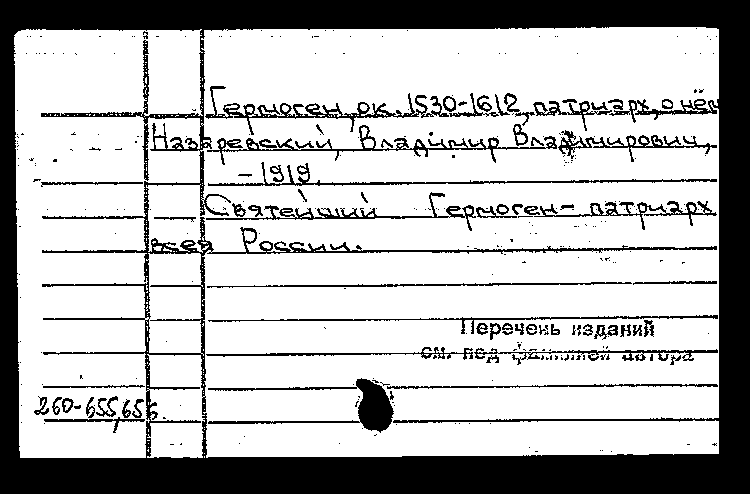 Гермоген, ок. 1530-1612, патриарх, о нём
Назаревский, Владимир Владимирович,
-1919.
Святейший Гермоген - патриарх
всея России.
Перечень изданий
см. под фамилией автора
260-655,656.